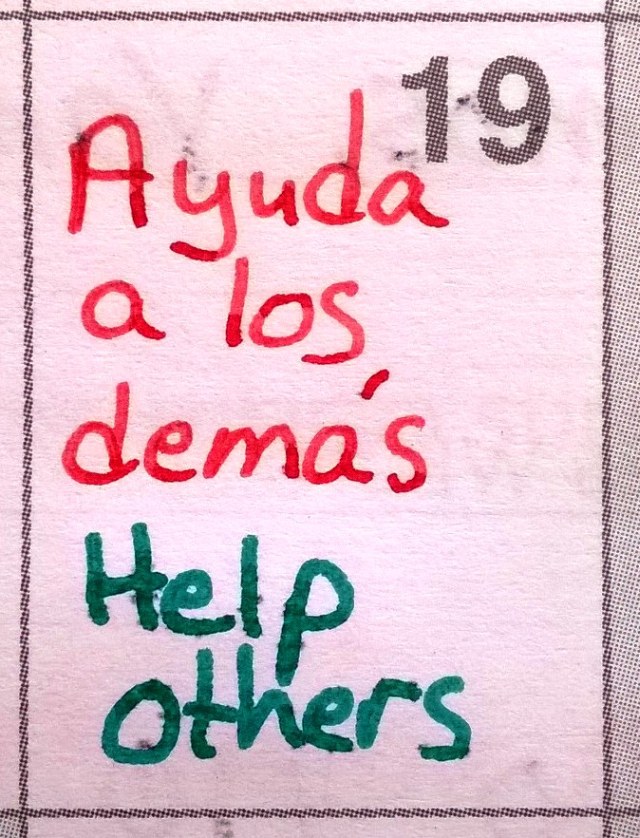 19
Ayuda
a los
demás
Help
others